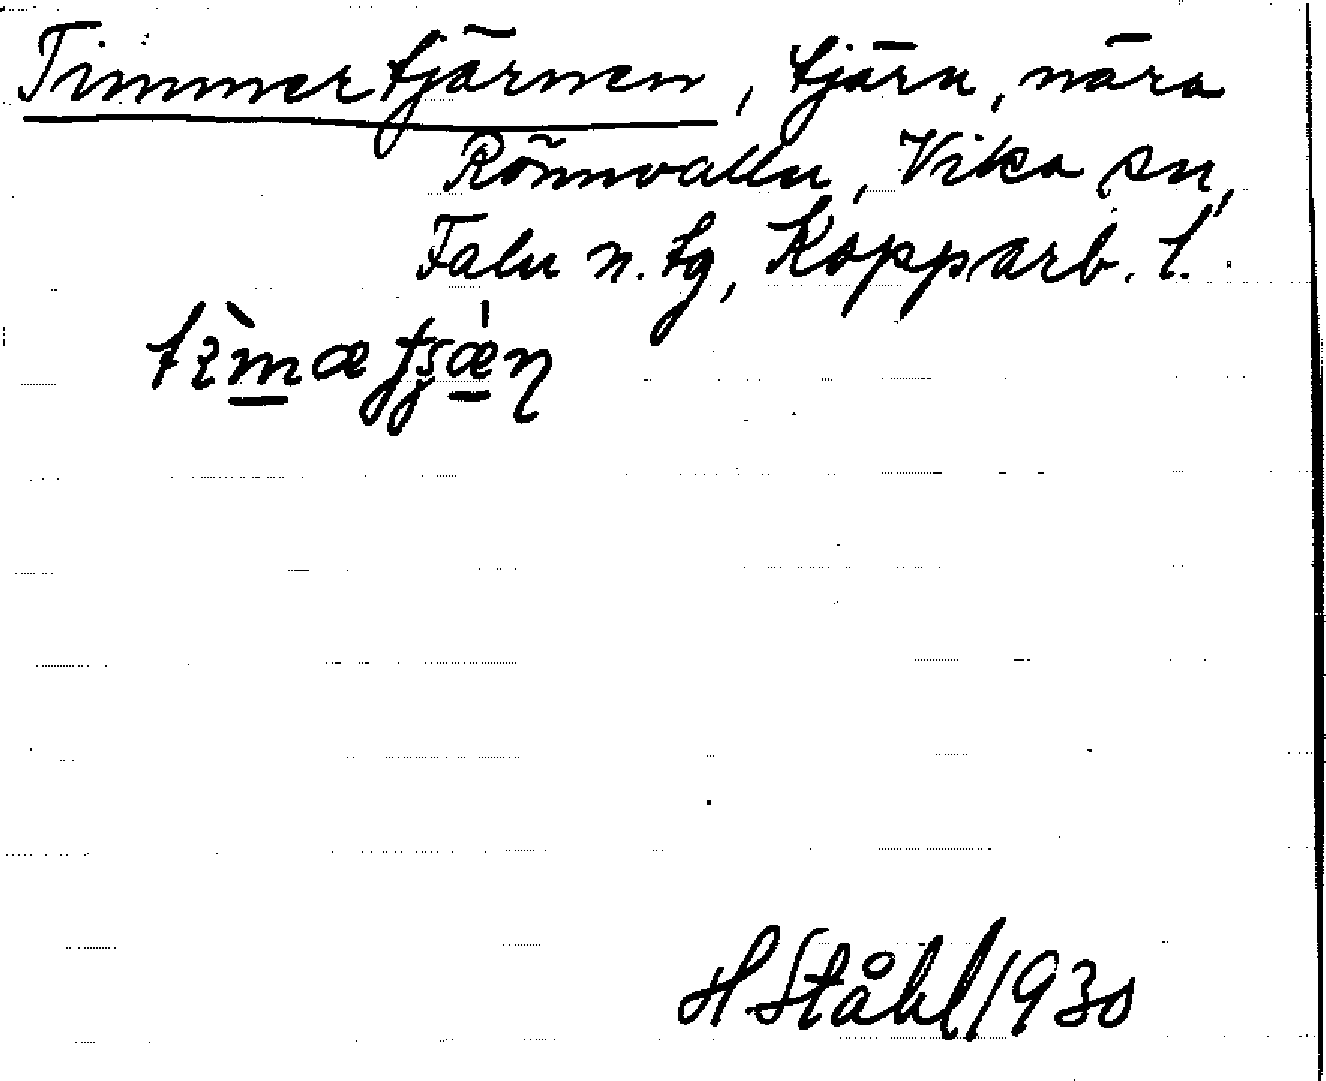 Timmertjärnen, tjärn, nära
Rönnvallen, Vika sn,
Falu n. tg, Kopparb. l.
H Ståhl/1930